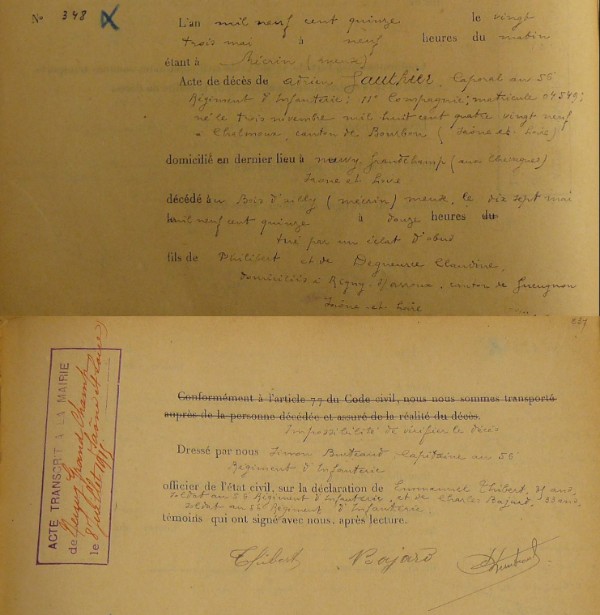 No 348
L'an mil neuf cent quinze le vingt
trois mai à neuf heures du matin
étant à Mécrin (meuse)
Acte de décès de Adrien Gauthier, Caporal au 56
Régiment d'Infanterie; 11e Compagnie; matricule 04549;
né le trois novembre mil huit cent quatre vingt neuf
à Chalmoux, canton de Bourbon (Saône et Loire)
domicilié en dernier lieu à Neuvy Grandchamp
Saône et Loire
décédé au Bois d'ailly (mécrin) meuse, le dix sept mai
mil neuf cent quinze à douze heures du
tué par un éclat d'obus
fils de Philibert et de Degueurce Claudine,
domiciliés à Rigny, canton de Gueugnon
Saône et Loire
ACTE TRANSCRIT A LA MAIRIE
de Neuvy Grand Champ Saône et Loire
le juillet
Conformément à l'article 77 du Code civil, nous nous sommes transporté
auprès de la personne décédée et assuré de la réalité du décès.
Impossibilité de vérifier le décès
Dressé par nous Simon, Capitaine au 56
Régiment d'Infanterie
officier de l'état civil, sur la déclaration de Emmanuel Thibert, 31 ans,
soldat au 56 Régiment d'Infanterie, et de Charles Bajard, 33 ans,
soldat au 56 Régiment d'Infanterie,
témoins qui ont signé avec nous, après lecture.
Thibert Bajard